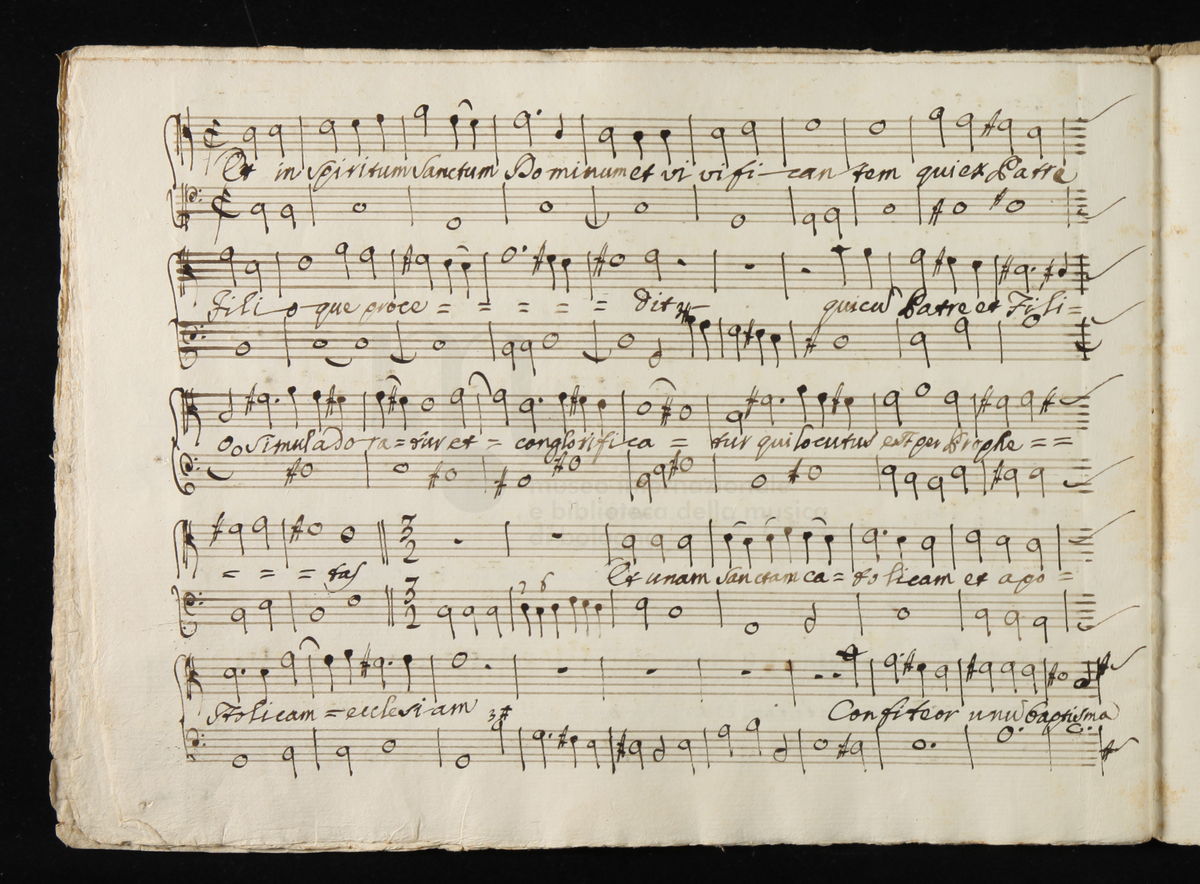 Et in spiritum sanctum Dominum et vivifi-cantem qui ex Patre
Filio-que proce = = = = = dit qui cũ Patre et Fili=
o simul adora=tur et = conglorifica = tur qui locutus est per Prophe ==
= = = tas Et unam sanctam ca=tolicam et apo=
7 6
stolicam = ecclesiam Confiteor unũ baptisma
museo internazionale
e biblioteca della musica